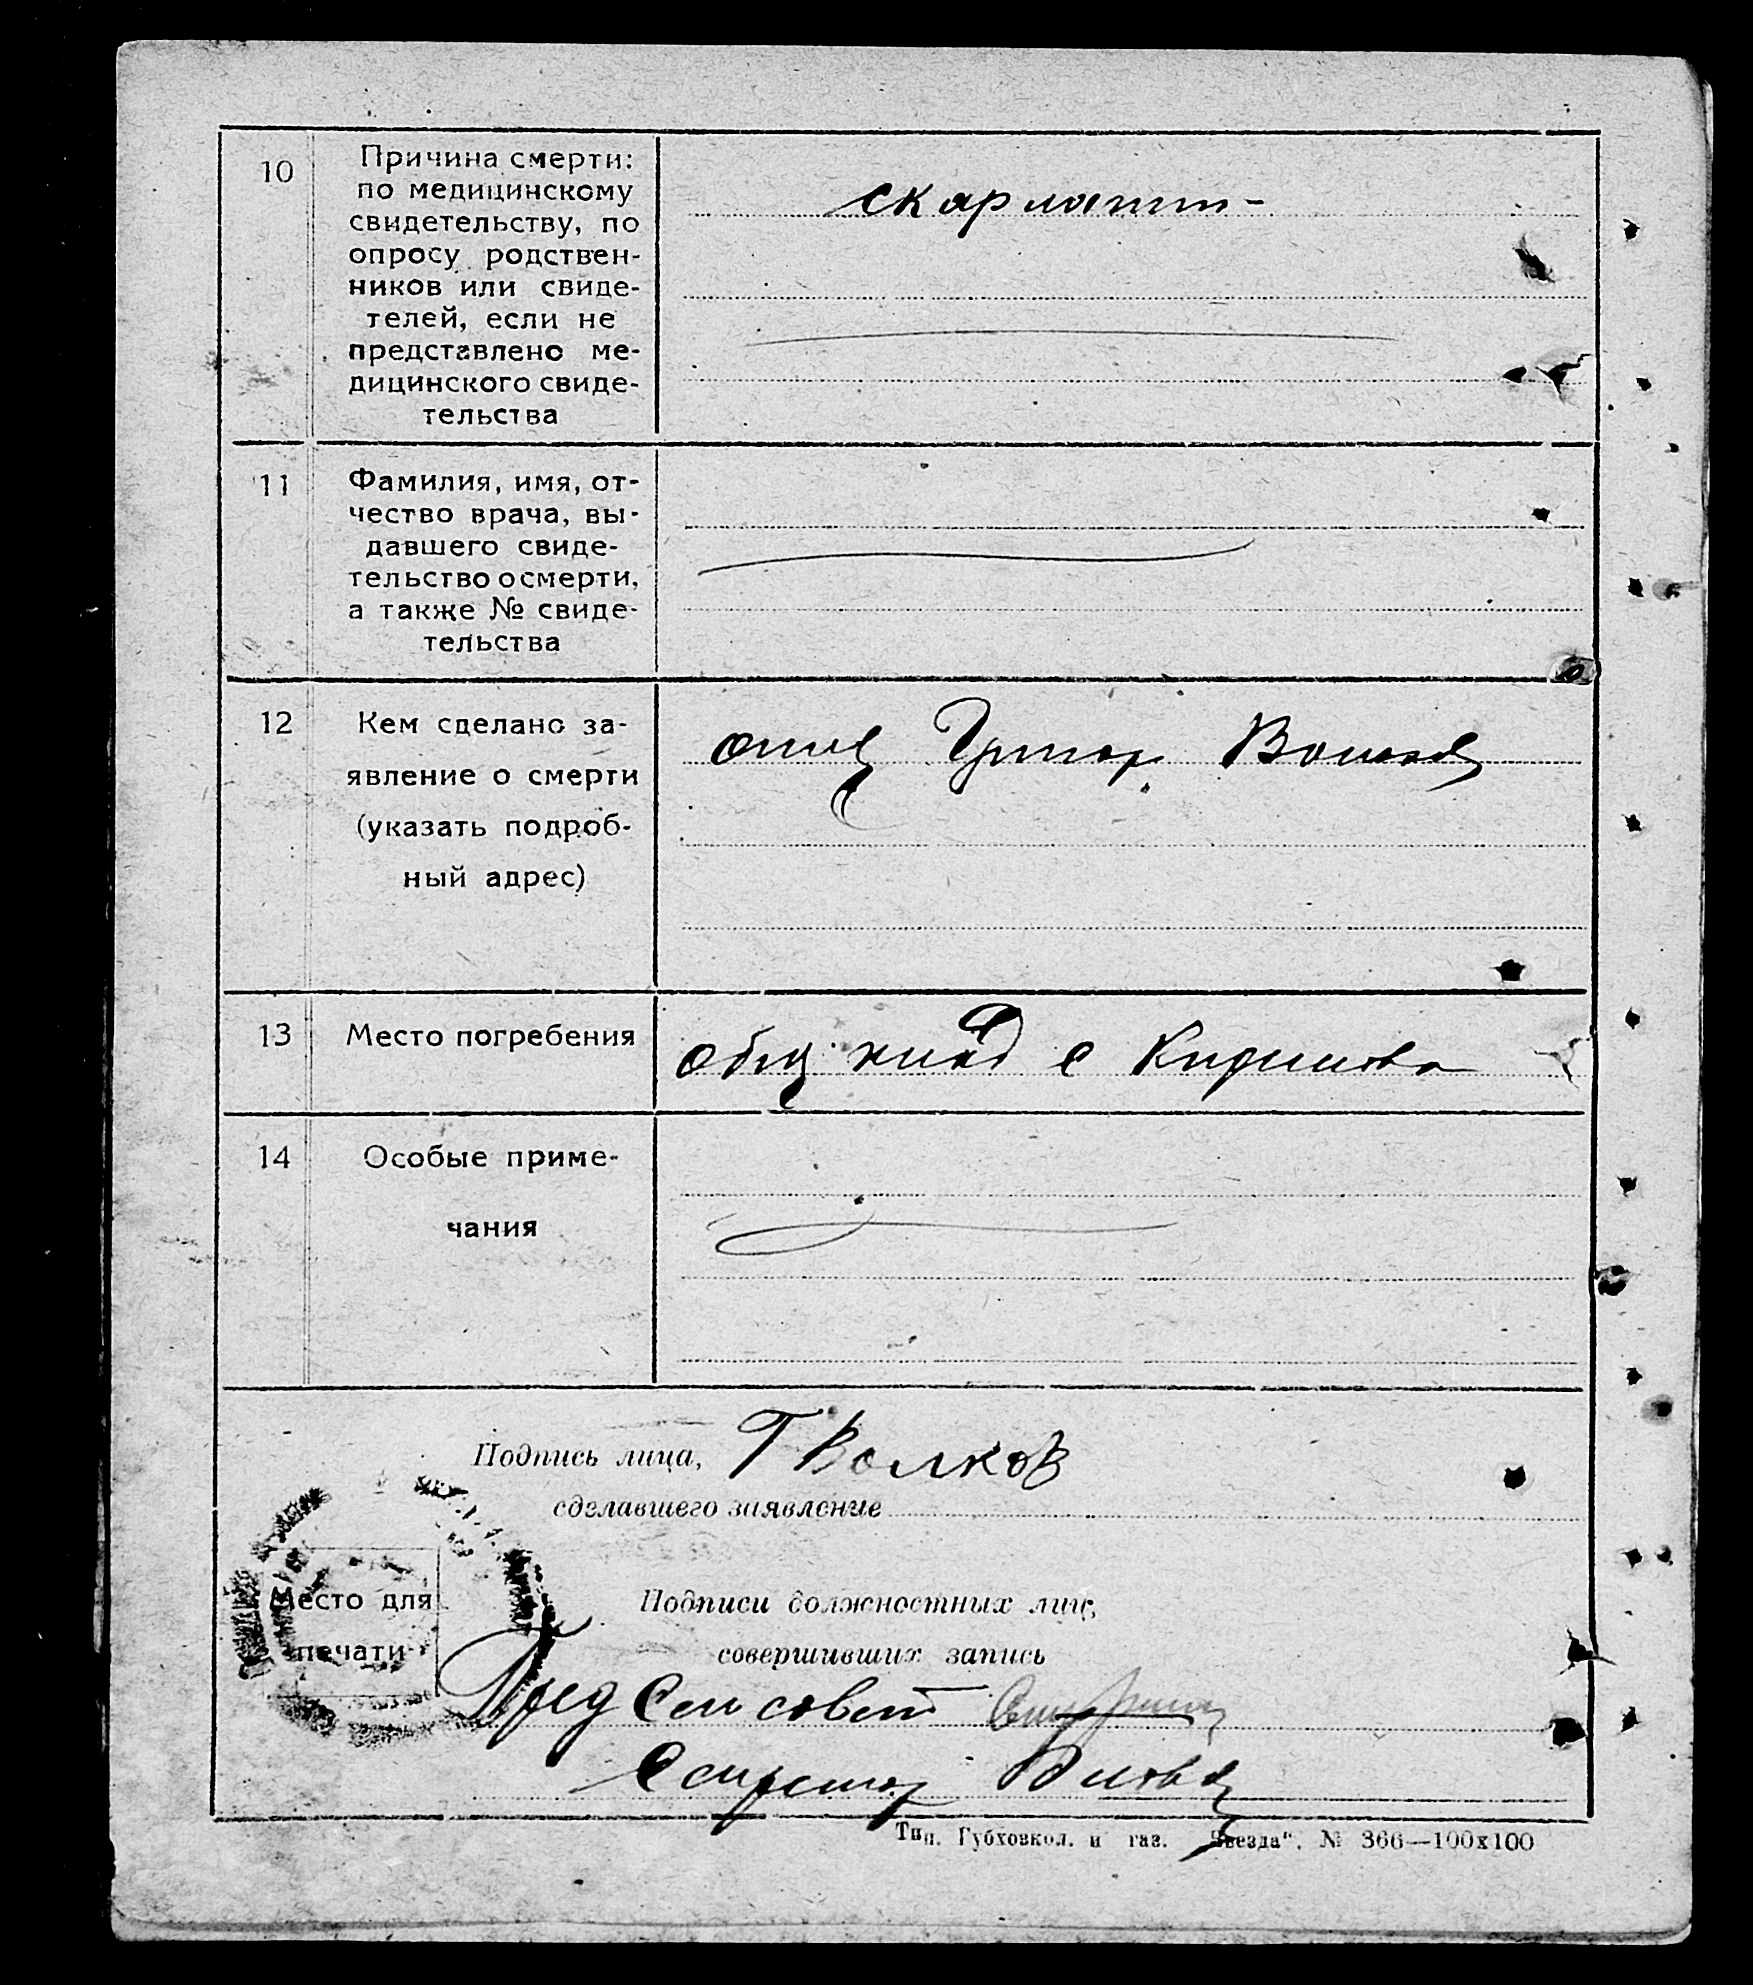 10 Причина смерти: скарлатин-
по медицинскому
свидетельству, по
опросу родствен-
ников или свиде-
телей, если не
представлено ме-
дицинского свиде-
тельства
11 Фамилия, имя, от-
чество врача, вы-
давшего свиде-
тельство о смерти,
а также № свиде-
тельства
12 Кем сделано за- отец Григор. Волков
явление о смерти
(указать подроб-
ный адрес)
13 Место погребения общ. клад с
14 Особые приме-
чания
Подпись лица, Г Волков
сделавшего заявление
Место для
печати
Подписи должностных лиц,
совершивших запись
Пред Сельсовет
Секретар
Тип. Губховкол. и газ. „Звезда“. № 366—100х100